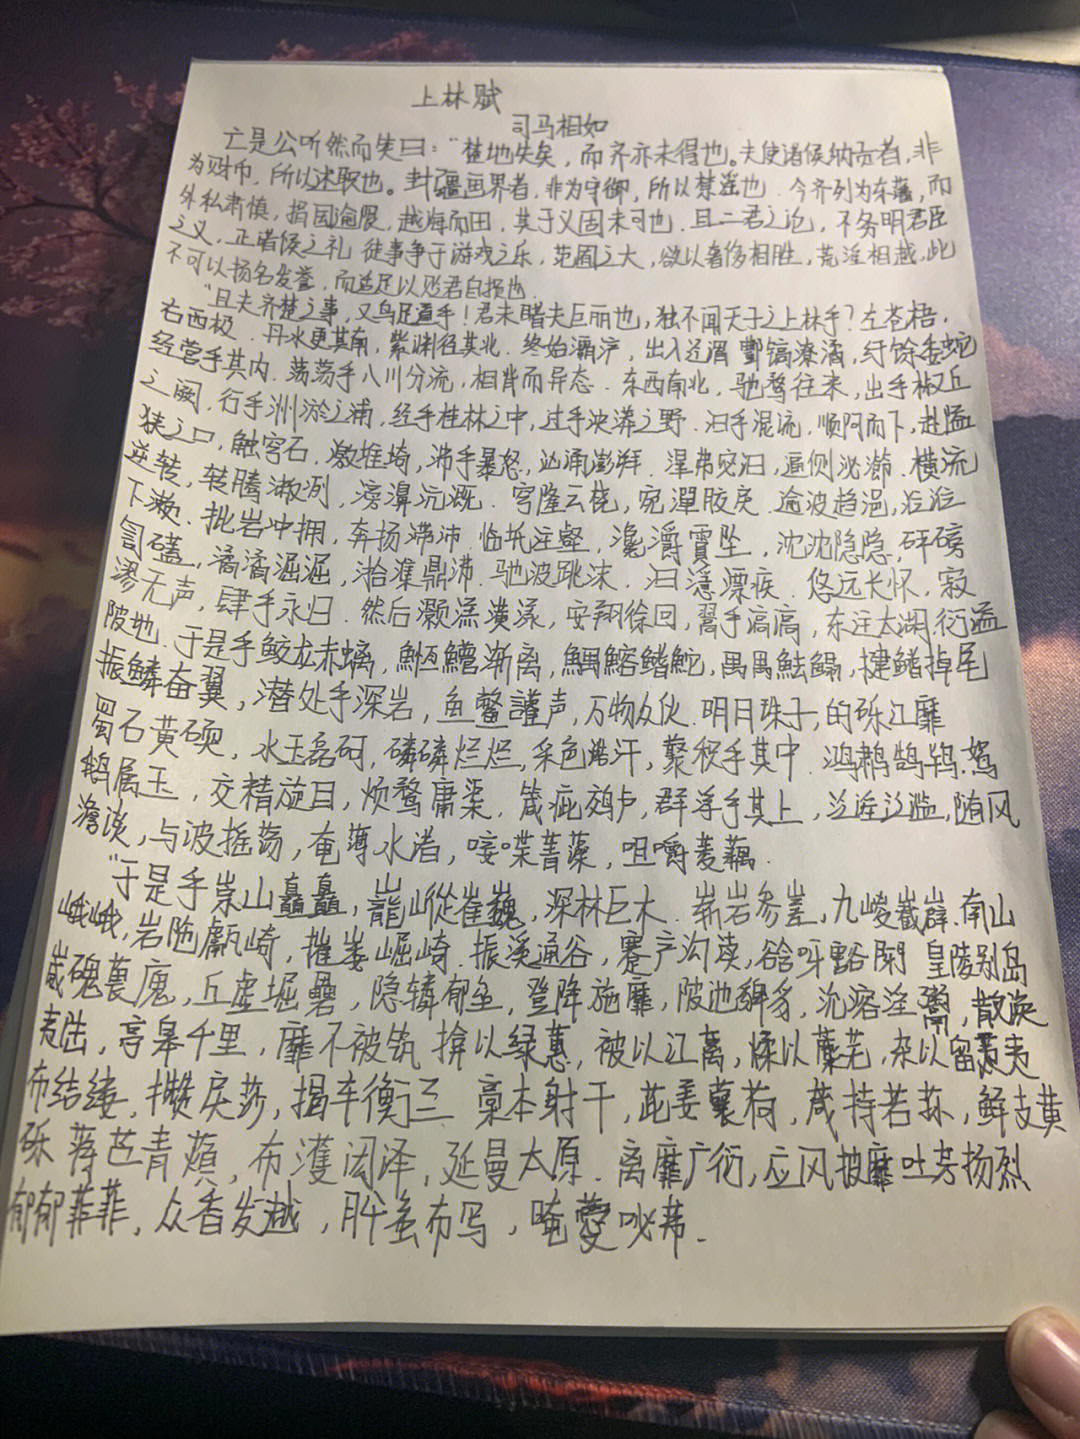 上林赋
司马相如
亡是公听然而笑曰："楚地失矣，而齐亦未得也。夫使诸侯纳贡者，非
为财币，所以述职也。封疆画界者，非为守御，所以禁淫也．今齐列为东藩，而
外私肃慎，捐国逾限，越海而田，其于义固未可也．且二君之论，不务明君臣
之义，正诸侯之礼 徒事争于游戏之乐，苑囿之大，欲以奢侈相胜，荒淫相越，此
不可以扬名发誉，而适足以贬君自损也．
"且夫齐楚之事，又乌足道乎！君未睹夫巨丽也，独不闻天子之上林乎？左苍梧，
右西极．丹水更其南，紫渊径其北．终始灞浐，出入泾渭 酆镐潦潏，纡馀委蛇
经营乎其内．荡荡乎八川分流，相背而异态．东西南北，驰骛往来，出乎椒丘
之阙，行乎洲淤之浦，经乎桂林之中，过乎泱漭之野．汩乎混流，顺阿而下，赴隘
狭之口，触穹石．激堆埼，沸乎暴怒，汹涌澎拜．滭弗宓汩，逼侧泌瀄．横流
逆转，转腾潎洌，滂濞沆溉．穹隆云桡，宛潬胶戾．逾波趋浥，涖涖
下濑．批岩冲拥，奔扬滞沛．临坻注壑，瀺灂霣坠，沈沈隐隐，砰磅
訇磕，潏潏淈淈，湁潗鼎沸．驰波跳沫．汩㴔漂疾．悠远长怀，寂
漻无声，肆乎永归．然后灏溔潢漾，安翔徐回，翯乎滈滈，东注太湖，衍溢
陂池．于是乎鲛龙赤螭，䱍䲛渐离，鰅鰫鳍鮀，禺禺魼鳎，揵鳍掉尾
振鳞奋翼，潜处乎深岩，鱼鳖讙声，万物众伙．明月珠子，的砾江靡
蜀石黄碝，水玉磊砢，磷磷烂烂，采色澔汗，聚积乎其中．鸿鹔鹄鸨．鴐
鹅属玉，交精旋目，烦鹜庸渠．箴疵䴔卢，群浮乎其上，泛淫泛滥，随风
澹淡，与波摇荡，奄薄水渚，唼喋菁藻，咀嚼菱藕．
"于是乎崇山矗矗，巃嵸崔巍，深林巨木．崭岩参差，九嵕巀嶭．南山
峨峨，岩陁甗崎，摧崣崛崎．振溪通谷，蹇产沟渎，谽呀豁閕 阜陵别岛
崴磈嵔廆，丘虚堀礨，隐辚郁𡾊，登降施靡，陂池貏豸，沇溶淫鬻，散涣
夷陆，亭皋千里，靡不被筑 揜以绿蕙，被以江蓠，糅以蘪芜，杂以留夷
布结缕，攒戾莎，揭车衡兰 稾本射干，茈姜蘘荷，葴持若荪，鲜支黄
砾 蒋苎青薠，布濩闳泽，延曼太原．离靡广衍，应风披靡 吐芳扬烈
郁郁菲菲，众香发越，肸蠁布写，晻薆咇茀．